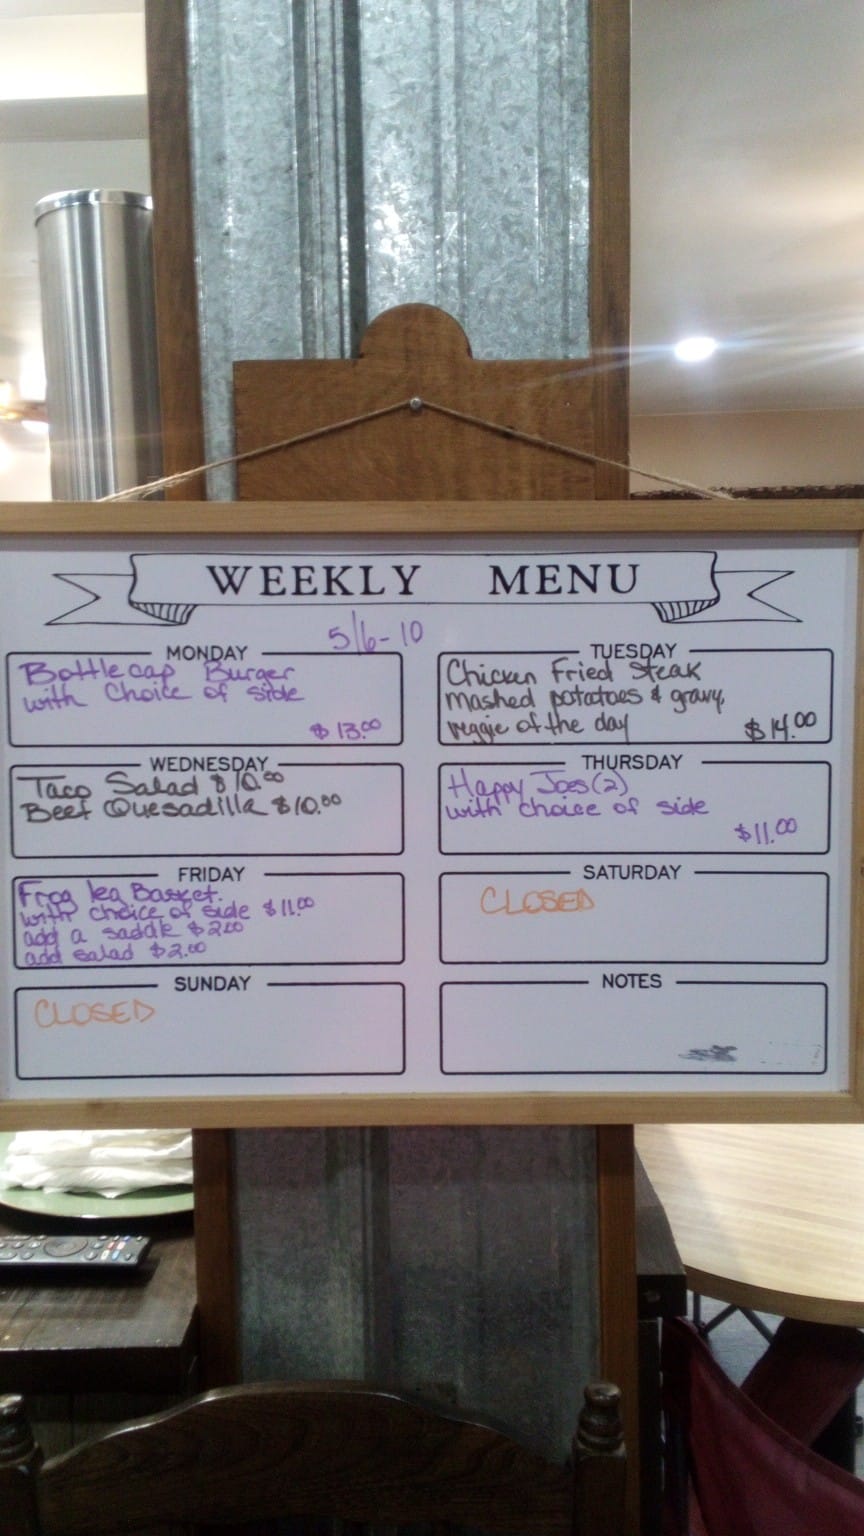 WEEKLY MENU
5/6-10
MONDAY
Bottlecap Burger
with Choice of side
$13.00
TUESDAY
Chicken Fried Steak
mashed potatoes & gravy,
veggie of the day $14.00
WEDNESDAY
Taco Salad $10.00
Beef Quesadilla $10.00
THURSDAY
Happy Joes (2)
with choice of side
$11.00
FRIDAY
Frog leg Basket
with choice of side $11.00
add a saddle $2.00
add salad $2.00
SATURDAY
CLOSED
SUNDAY
CLOSED
NOTES